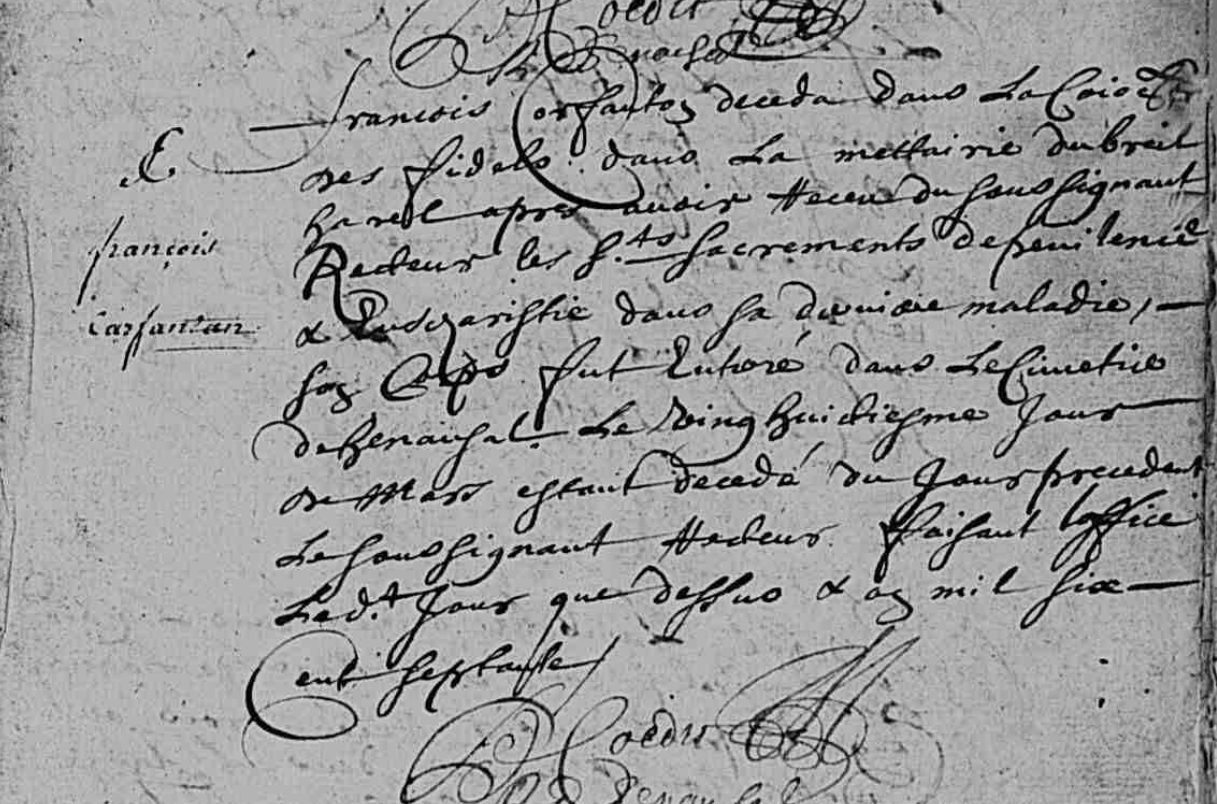 Coedic
Henansal
François Corfanton deceda dans La Crioe
des fidels dans La mettairie dubreil
E
harel apres auoir Receu du soussignant
françois
Recteur les S.ts sacrements de penitencé
carfantan
& Eucharistie dans sa derniere maladie, —
son Corps fut Enterré dans Le Cimetiere
de henansal. Le vingt huictiesme Jour
de Mars estant decedé du Jour precedent
Le soussignant Recteur faisant loffice
Led.t Jour que dessus & an mil six —
Cent septante /
Coedic
Henansal